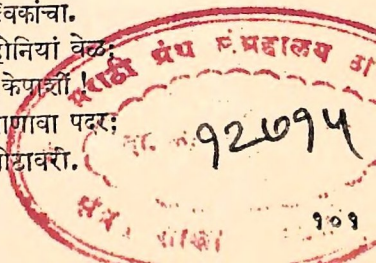 वकांचा.
होनियां वेळ;
केपाशीं !
णावा पदर;
ोटावरी.
मराठी ग्रंथ संग्रहालय
१२७१५
१०१